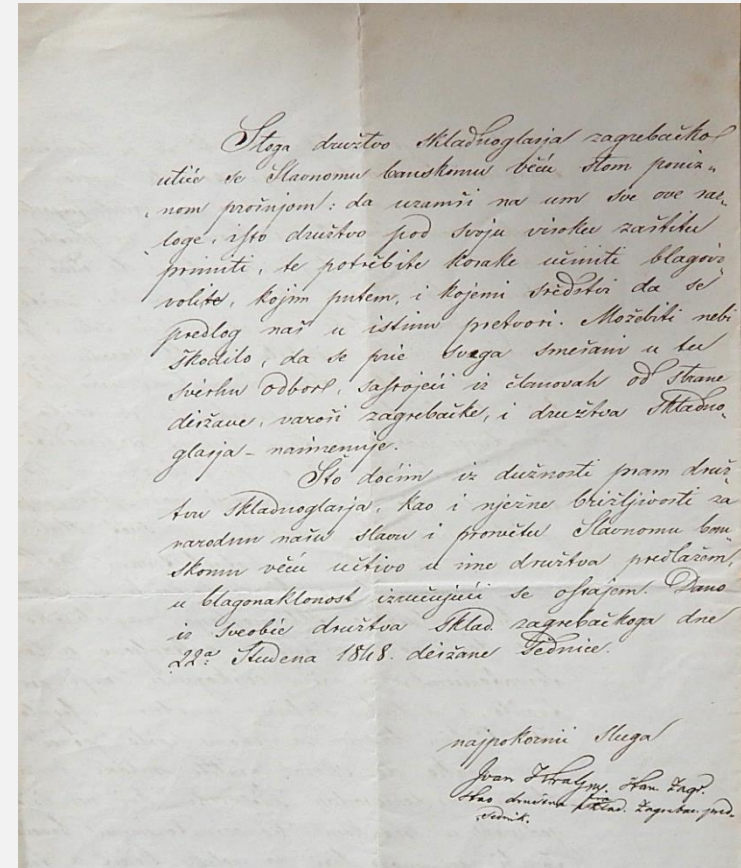 Stoga družtvo skladnoglasja zagrebačko
utiče se Slavnomu banskomu věću stom poniz„
„nom prošnjom: da uzamši na um sve ove raz„
loge, isto družtvo pod svoju visoku zaštitu
primiti, te potrěbite korake učiniti blagoiz
volite, kojim putem, i kojemi srědstvi da se
predlog naš u istinu pretvori. Možebiti nebi
škodilo, da se prie svega směšani u tu
sverhu odbor, sastojeći iz članovah od strane
deržave, varoši zagrebačke, i družtva skladno„
glasja – naimenuje.
Što dočim iz dužnosti pram druž„
tvu skladnoglasja, kao i nježne brižljivosti za
narodnu našu slavu i prosvětu Slavnomu ban
skomu věću učtivo u ime družtva predlažem,
u blagonaklonost izručujući se ostajem. Dano
iz sveobće družtva sklad. zagrebačkoga dne
22ª. Studena 1848. deržane Sědnice.
najpokornii sluga
Ivan Zagr.
kao družtva sklad. Zagrebač. pred„
sědnik.